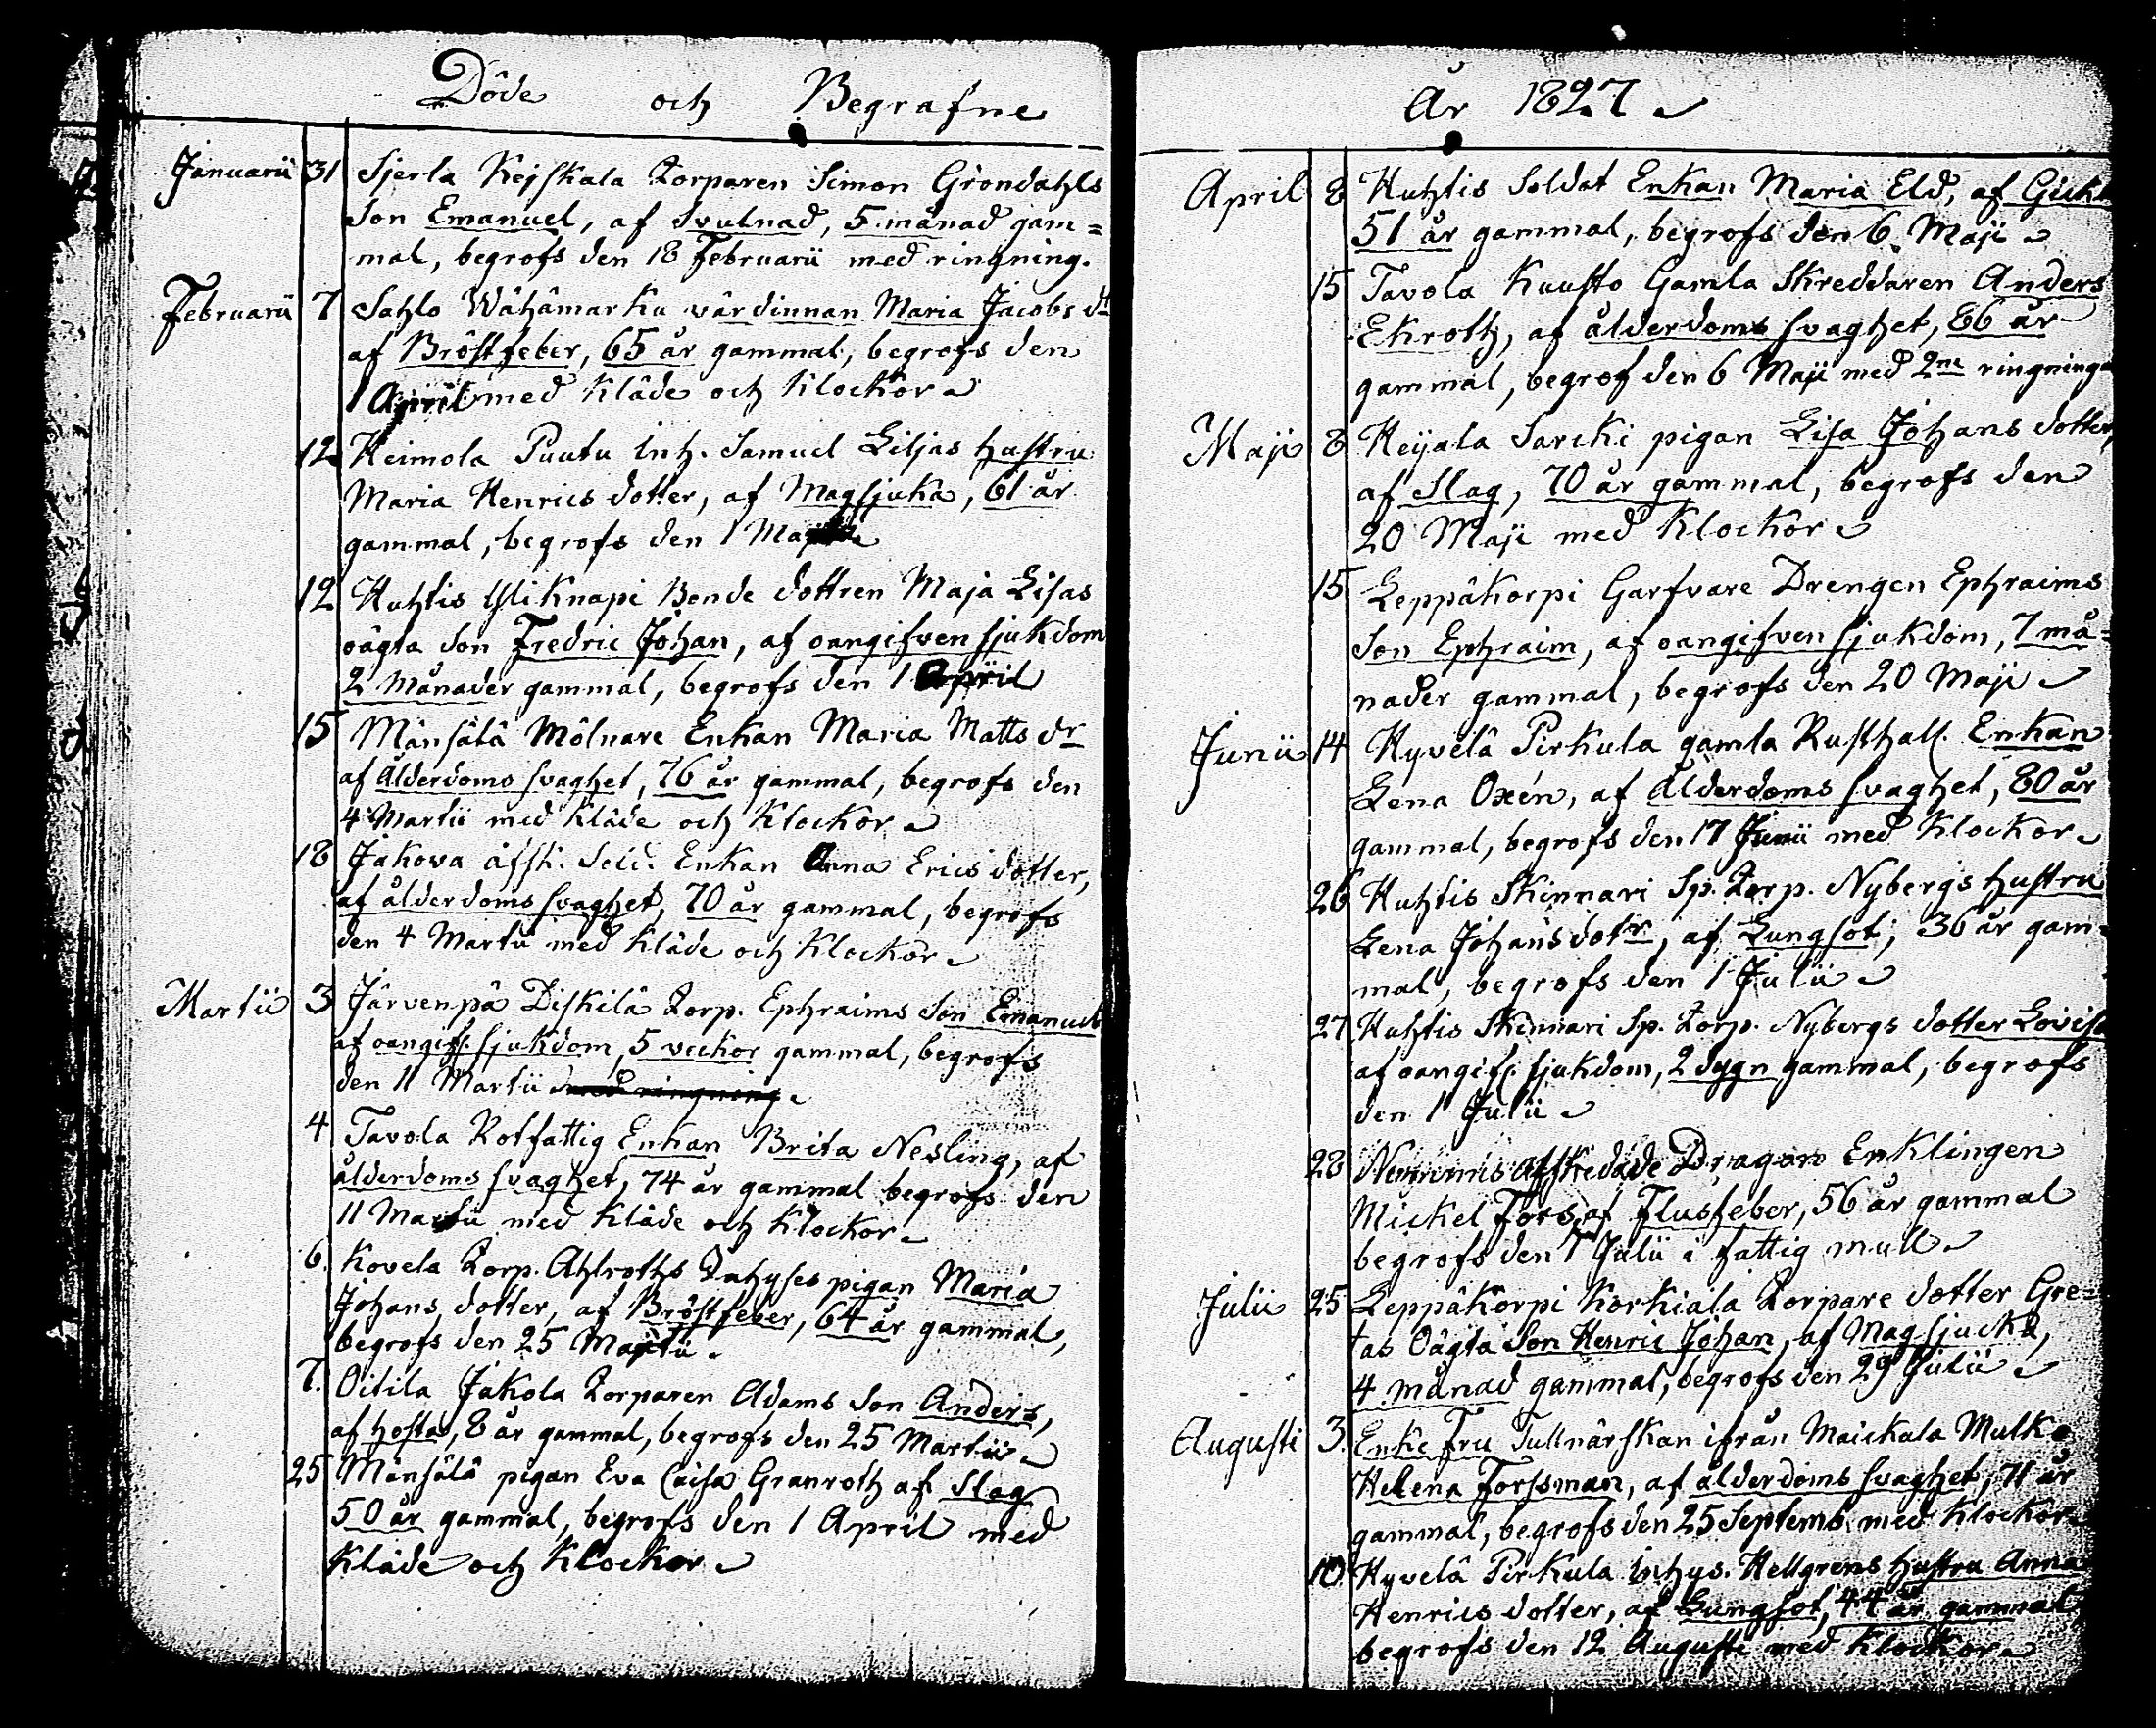 Döde och Begrafne
Januarii 31 Sjerla Kejskala Torparen Simon Gröndahls
Son Emanuel, af Svulnad, 5 månad gam=
mal, begrofs den 18 Februarii med ringning.
Februarii 7 Sahlo Wähämarku värdinnan Maria Jacobs dr
af Bröstfeber, 65 år gammal, begrofs den
1 April med Kläde och Klockor
12 Heimola Puutu inh. Samuel Liljas hustru
Maria Henrics dotter, af Magsjuka, 61 år
gammal, begrofs den 1
12 Huhtis Yliknapi Bonde dottren Maja Lisas
oägta Son Fredric Johan, af oangifven sjukdom
2 Månader gammal, begrofs den 1 April
15 Mänsälä Mölnare Enkan Maria Matts dr
af ålderdoms svaghet, 76 år gammal, begrofs den
4 Martii med Kläde och Klockor
18 Jakova afsk. Enkan Anna Erics dotter,
af ålderdoms svaghet, 70 år gammal, begrofs
den 4 Martii med Kläde och Klockor
Martii 3 Järvenpä Diskilä Torp. Ephraims Son Emanuel
af oangifv. sjukdom, 5 veckor gammal, begrofs
den 11 Martii med ringning
4 Tavola Rotfattig Enkan Brita Nesling, af
ålderdoms svaghet, 74 år gammal begrofs den
11 Martii med Kläde och Klockor
6. Kovela Torp. Ahlroths Inhyses pigan Maria
Johans dotter, af Bröstfeber, 64 år gammal,
begrofs den 25 Martii.
7. Oitila Jakola Torparen Adams Son Anders,
af hosta, 8 år gammal, begrofs den 25 Martii
25 Mänsälä pigan Eva Caisa Granroth af Slag
50 år gammal, begrofs den 1 April med
Kläde och Klockor
År 1827
April 8 Huhtis Soldat Enkan Maria Eld, af
51 år gammal, begrofs den 6 Maji
15 Tavola Kuusto Gamla Skreddaren Anders
Ekroth, af ålderdoms svaghet, 86 år
gammal, begrof den 6 Maji med 2ne ringningar
Maji 8 Heijala Sarcki pigan Lisa Johans dotter,
af Slag, 70 år gammal, begrofs den
20 Maji med Klockor
15 Leppäkorpi Garfvare Drengen Ephraims
Son Ephraim, af oangifven sjukdom, 7 må=
nader gammal, begrofs den 20 Maji
Junii 14 Hyvelä Pirkula gamla Rusthåll. Enkan
Lena Oxén, af ålderdoms svaghet, 80 år
gammal, begrofs den 17 Junii med Klockor
26 Huhtis Skinnari Sp. Torp. Nybergs hustru
Lena Johansdotr, af Lungsot, 36 år gam=
mal, begrofs den 1 Julii
27 Huhtis Skinnari Sp. Torp. Nybergs dotter Lovisa
af oangifv. sjukdom, 2 dygn gammal, begrofs
den 1 Julii
28 afskedade Dragon Enklingen
Mickel Fors, af Flussfeber, 56 år gammal
begrofs den 1 Julii i fattig mull
Julii 25 Leppäkorpi Korkiala Torpare dotter Gre=
tas Oägta Son Henric Johan, af Magsjucka,
4 månad gammal, begrofs den 29 Julii
Augusti 3. Enke Fru Tullnärskan ifrån Maickala Mulko
Helena Forssman, af ålderdoms svaghet, 71 år
gammal, begrofs den 25 Septemb. med Klockor
10 Hyvelä Pirkula inhys. Hellgrens hustru Anna
Henrics dotter, af Lungsot, 44 år gammal
begrofs den 12 Augusti med Klockor